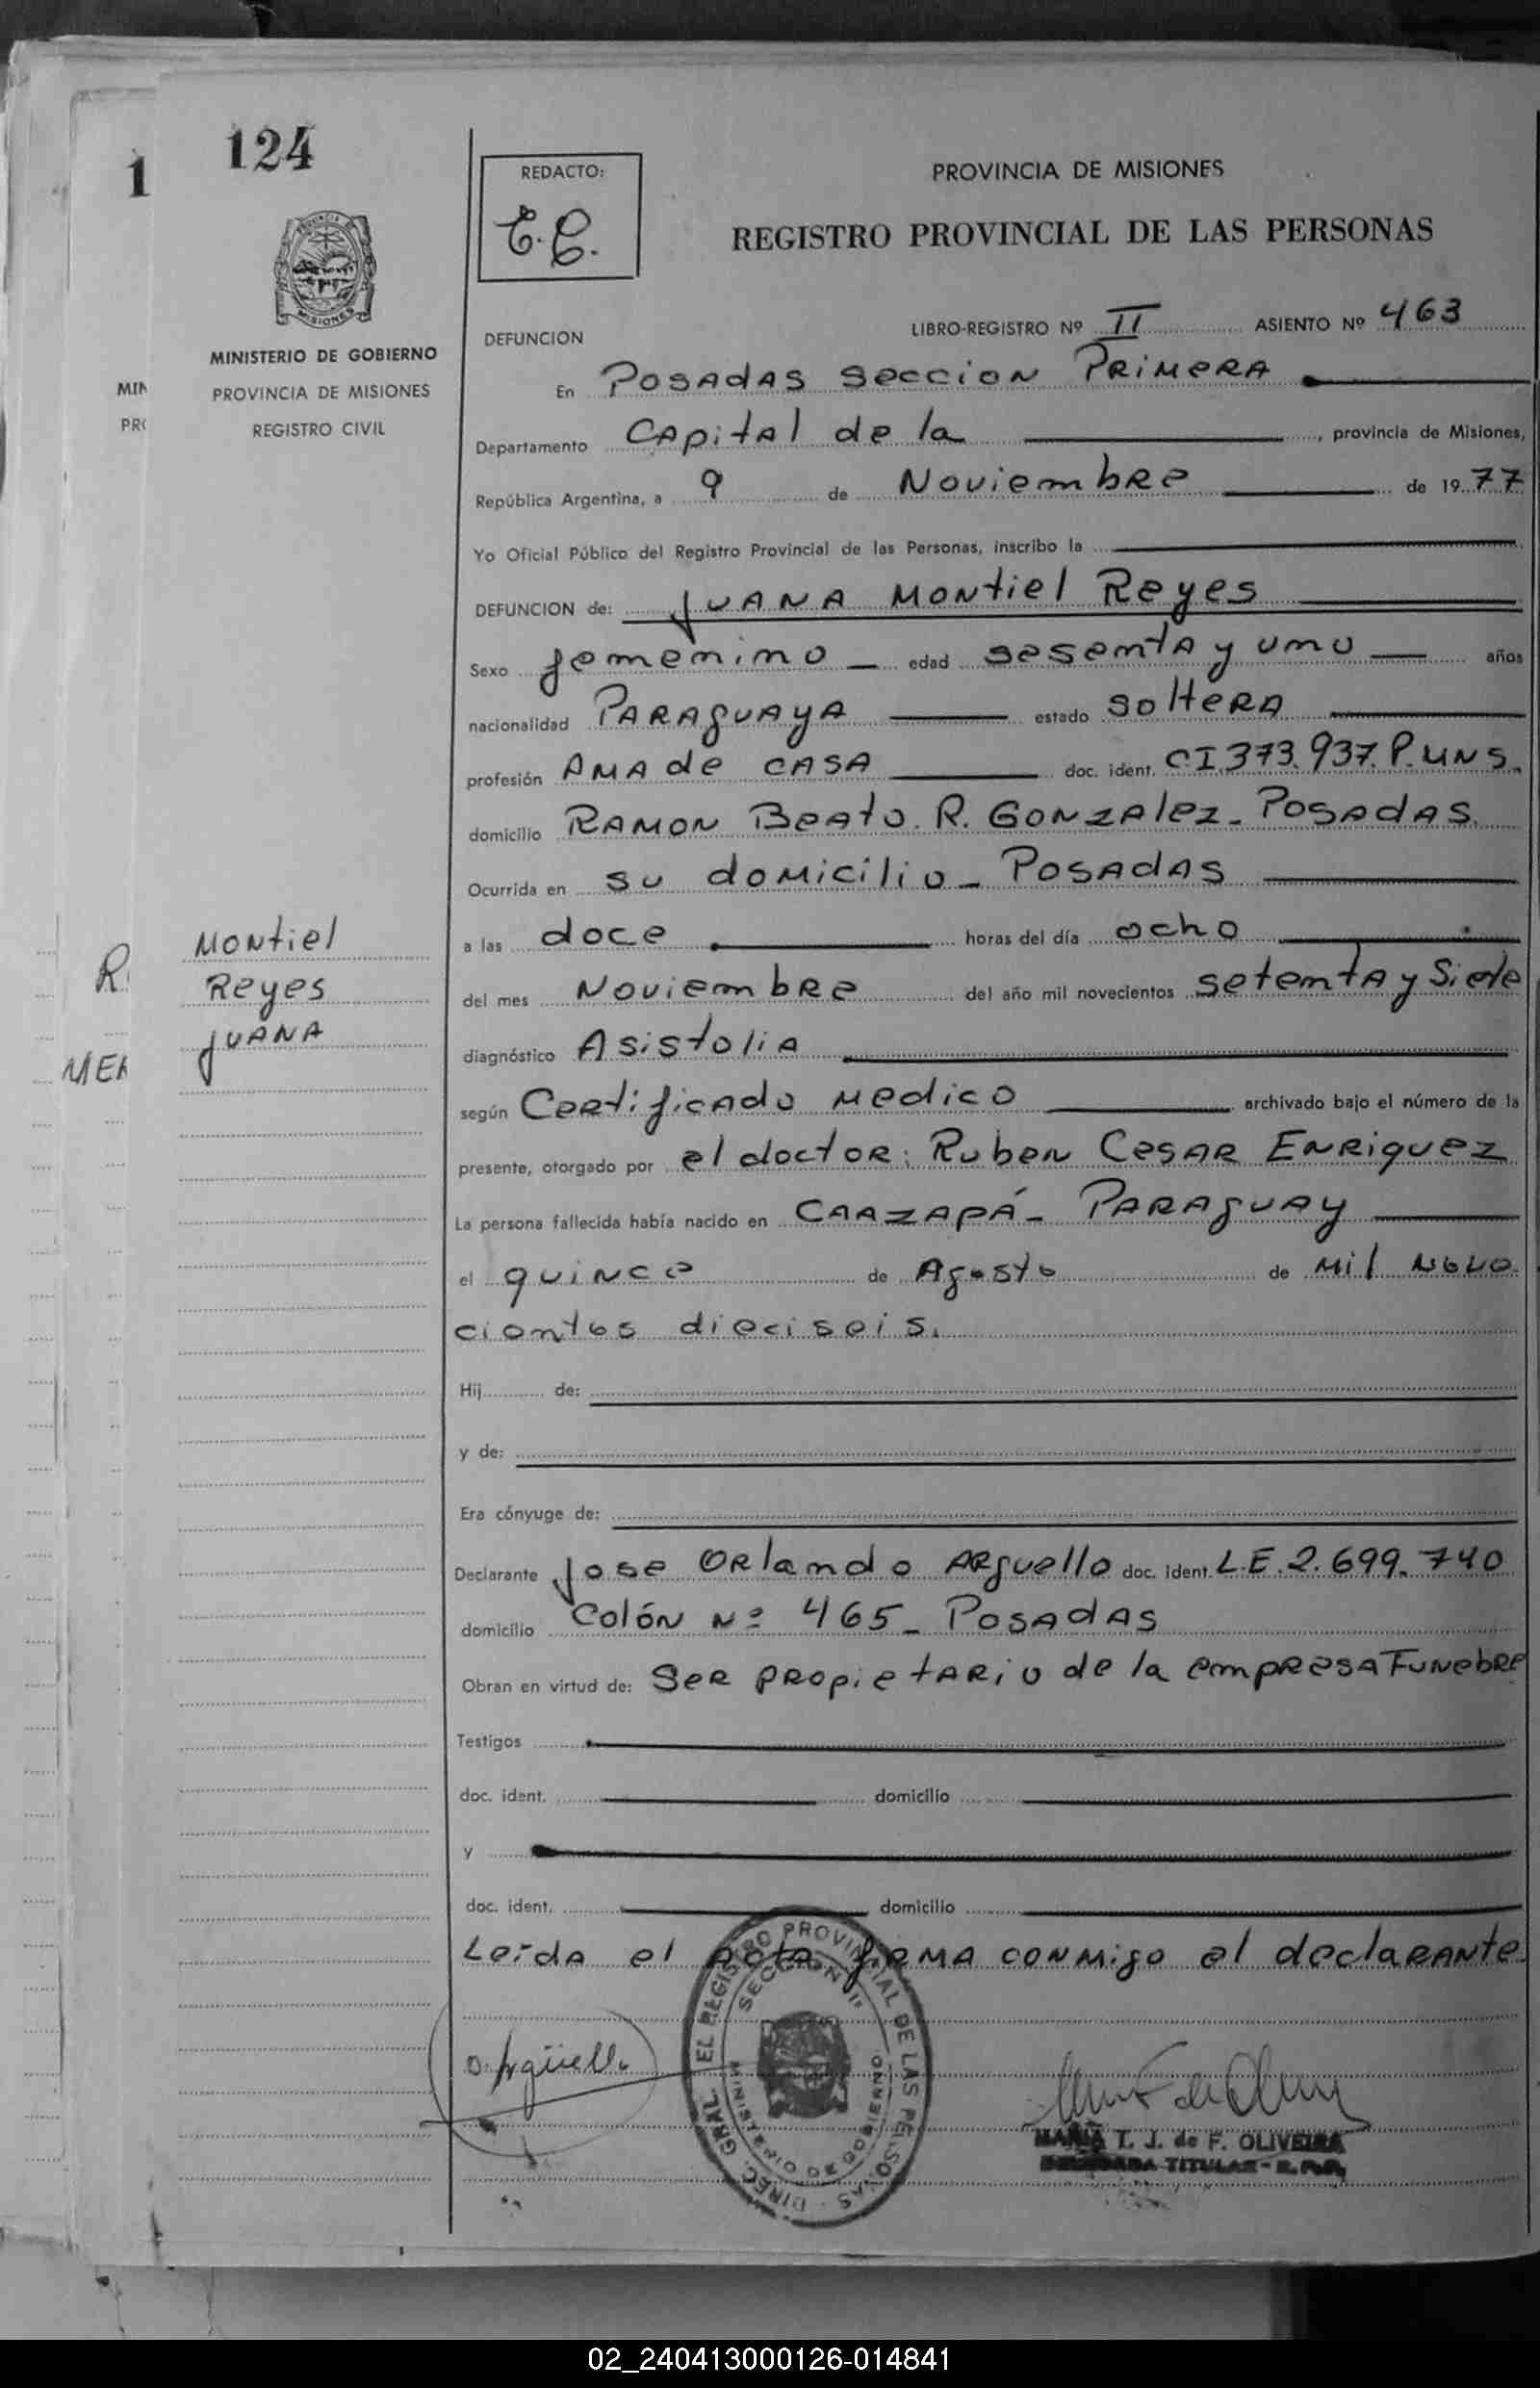 124
1
REDACTO:
PROVINCIA DE MISIONES
REGISTRO PROVINCIAL DE LAS PERSONAS
MISIONES
MINISTERIO DE GOBIERNO
PROVINCIA DE MISIONES
REGISTRO CIVIL
MIN
PR
DEFUNCION LIBRO-REGISTRO Nº II ASIENTO Nº 463
En Posadas Seccion Primera
Departamento Capital de la , provincia de Misiones,
República Argentina, a 9 de Noviembre de 1977
Yo Oficial Público del Registro Provincial de las Personas, inscribo la
DEFUNCION de: Juana Montiel Reyes
Sexo femenino edad sesenta y uno años
nacionalidad Paraguaya estado soltera
profesión Ama de casa doc. ident. CI 373.937. P. UNS.
domicilio Ramon Beato. R. Gonzalez - Posadas.
Ocurrida en su domicilio - Posadas
a las doce horas del día ocho
del mes Noviembre del año mil novecientos setenta y Siete
diagnóstico Asistolia
según Certificado medico archivado bajo el número de la
presente, otorgado por el doctor: Ruben Cesar Enriquez
La persona fallecida había nacido en Caazapá - Paraguay
el quince de Agosto de mil nove
cientos dieciseis.
Hij de:
y de:
Era cónyuge de:
Declarante Jose Orlando Arguello doc. ident. L.E. 2.699.740
domicilio Colón Nº 465 - Posadas
Obran en virtud de: Ser propietario de la empresa Funebre
Testigos
doc. ident. domicilio
y
doc. ident. domicilio
Leída el acta firma conmigo el declarante.
Montiel
Reyes
Juana
R
MER
O. Argüello
DIREC. GRAL. EL REGISTRO PROVINCIAL DE LAS PERSONAS
SECCION 1ª
MINISTERIO DE GOBIERNO
MARIA T. J. de F. OLIVEIRA
DELEGADA TITULAR - R.P.P.
02_240413000126-014841